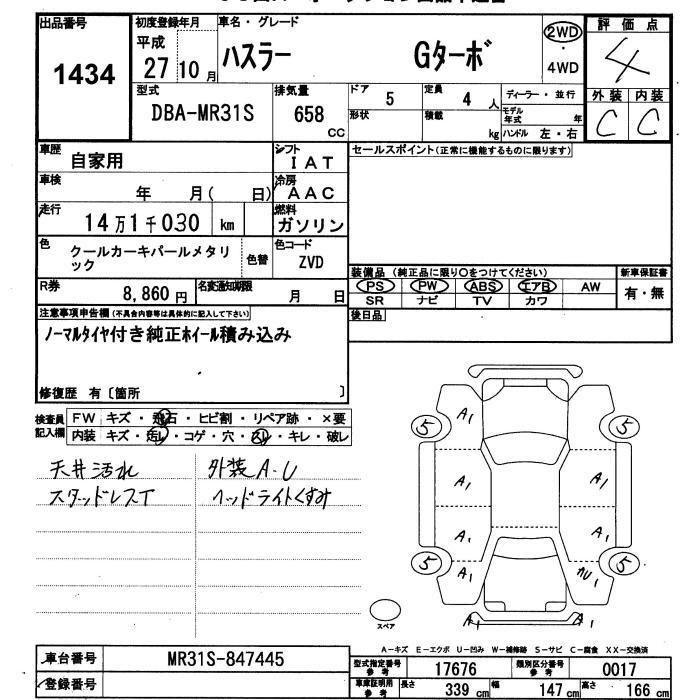 出品番号
1434
初度登録年月
平成
27 10 月
車名・グレード
ハスラー Gターボ
2WD
・
4WD
評価点
4
外装 内装
C C
型式
DBA-MR31S
排気量
658
CC
ドア
5
定員
4 人
ディーラー・並行
形状
積載
kg
モデル年式 年
ハンドル 左・右
車歴
自家用
シフト
I A T
セールスポイント(正常に機能するものに限ります)
車検
年 月( 日)
冷房
A A C
走行
14 万 1 千 030 km
燃料
ガソリン
色
クールカーキパールメタリ
ック
色替
色コード
ZVD
装備品 (純正品に限り○をつけてください)
PS PW ABS エアB AW
SR ナビ TV カワ
新車保証書
有・無
R券
8,860 円
名変通知期限
月 日
後日品
注意事項申告欄(不具合内容等は具体的に記入して下さい)
ノーマルタイヤ付き純正ホイール積み込み
修復歴 有〔箇所 〕
検査員
記入欄
FW キズ・飛石・ヒビ割・リペア跡・×要
内装 キズ・汚れ・コゲ・穴・スレ・キレ・破レ
天井汚れ
スタッドレスT
外装A.U
ヘッドライトくすみ
A1
5 5
A1 A1
A1 A1
5 5
A1 カU1
A1 A1
スペア
A-キズ E-エクボ U-凹み W-補修跡 S-サビ C-腐食 XX-交換済
車台番号
MR31S-847445
登録番号
型式指定番号
参考
17676
類別区分番号
参考
0017
車庫証明用
参考
長さ
339 cm
幅
147 cm
高さ
166 cm